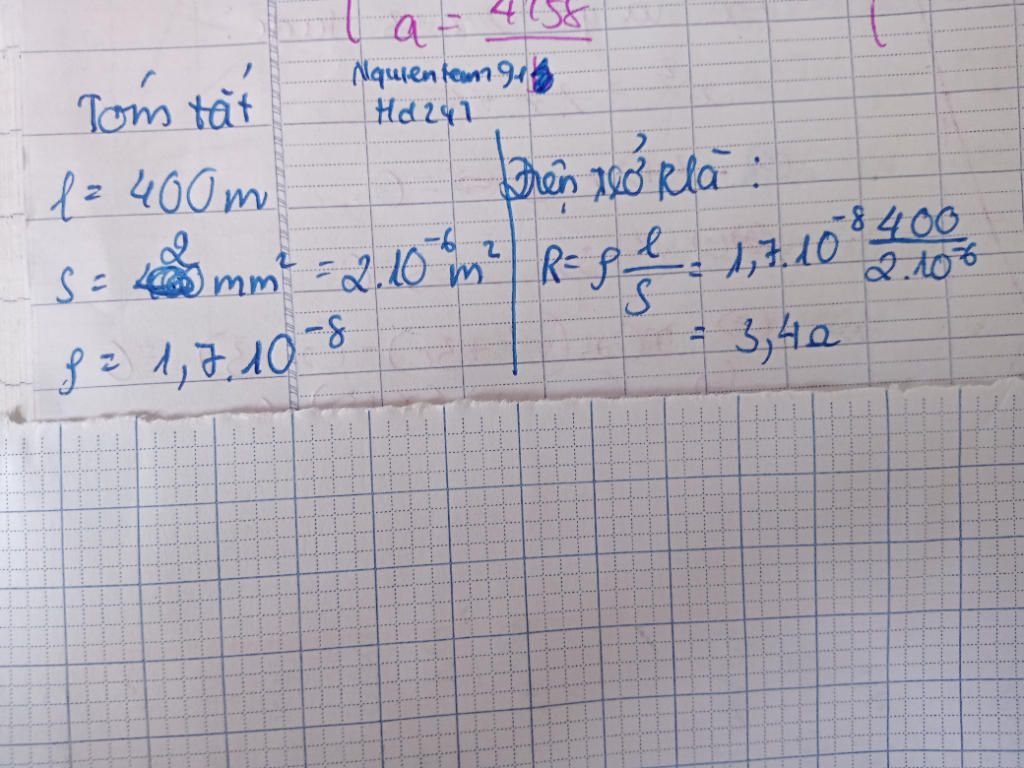 a = 4158
Nguyentam 91
Hd247
Tóm tắt
l = 400m
S = 2 mm² = 2.10⁻⁶ m²
ρ = 1,7.10⁻⁸
Điện trở R là :
R = ρ l/S = 1,7.10⁻⁸ 400/2.10⁻⁶
= 3,4Ω